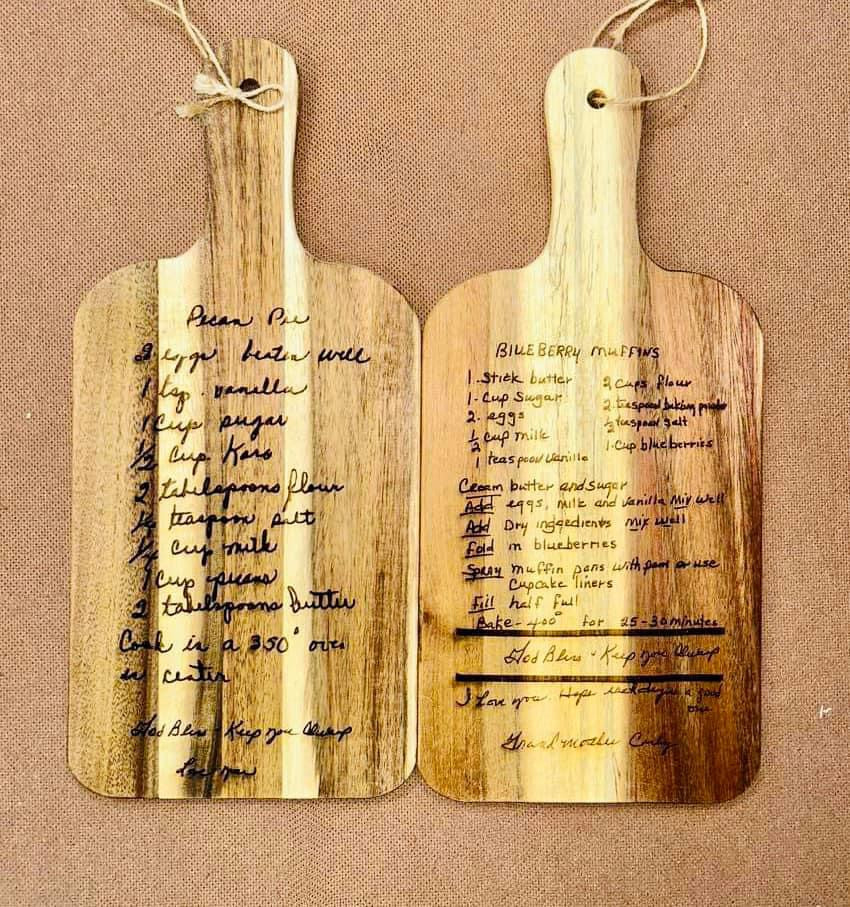 Pecan Pie
3 eggs beaten well
1 tsp. vanilla
1 Cup sugar
1/2 Cup Karo
2 tabelspoons flour
teaspoon salt
Cup milk
1 Cup pecans
2 tabelspoons butter
Cook in a 350° oven
in center
God Bless - Keep you Always
Love you
BLUEBERRY MUFFINS
1. Stick butter
1- Cup Sugar
2. eggs
1/2 cup milk
1 teaspoon vanilla
2 Cups flour
2. teaspoon baking powder
1/2 teaspoon Salt
1- Cup blueberries
Cream butter and sugar
Add eggs, milk and vanilla Mix Well
Add Dry inggedients mix well
Fold in blueberries
Spray muffin pans with pam or use
Cupcake liners
Fill half full
Bake - 400° for 25-30 minutes
God Bless - Keep you Always
I Love you. Hope each day is a good
one
Grandmother